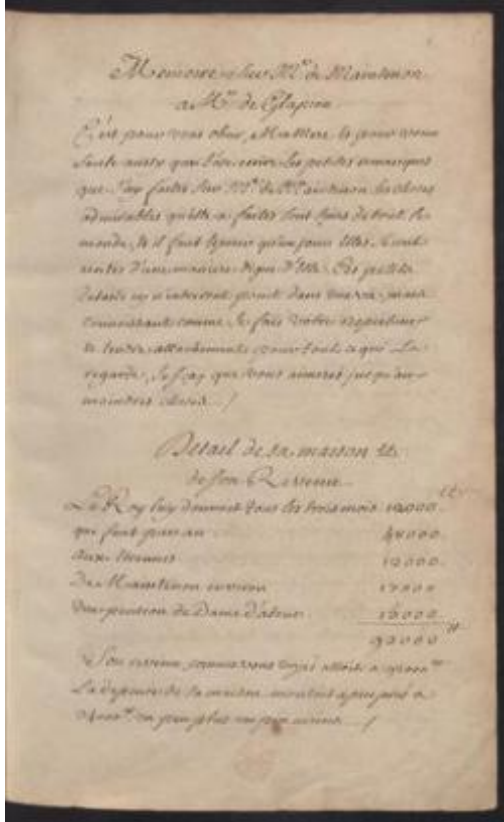 Memoire sur Mme de Maintenon
a Mme de Glapion
C'est pour vous obeir, Ma Mere, et pour vous
faire ecrire les petites remarques
que J'ay faites sur Mme de Maintenon les choses
admirables qu'elle a faites sont de tout le
monde, et il faut qu'un jour elles soient
d'une maniere digne d'Elle. Ces petits
details n'entreront point dans mais
connoissant comme Je fais votre
et tendre attachement pour tout ce qui La
regarde, Je sçay que vous aimeres jusqu'au
moindres choses
Detail de sa maison et
de son Revenu
Le Roy luy donnoit tous les trois mois 12000
qui font par an 48000
Aux Etrennes 12000
De Maintenon environ
Une pension de Dame d'atour
93000
Son revenu, comme vous voyés alloit a
La depense de sa maison montoit a peu près a
un peu plus un peu moins